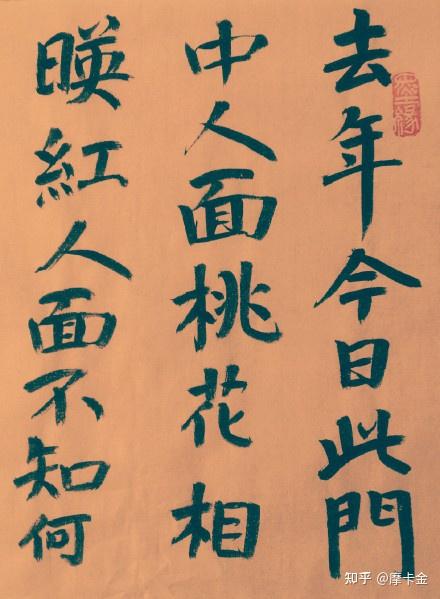 去年今日此門
中人面桃花相
暎紅人面不知何
知乎 @摩卡金